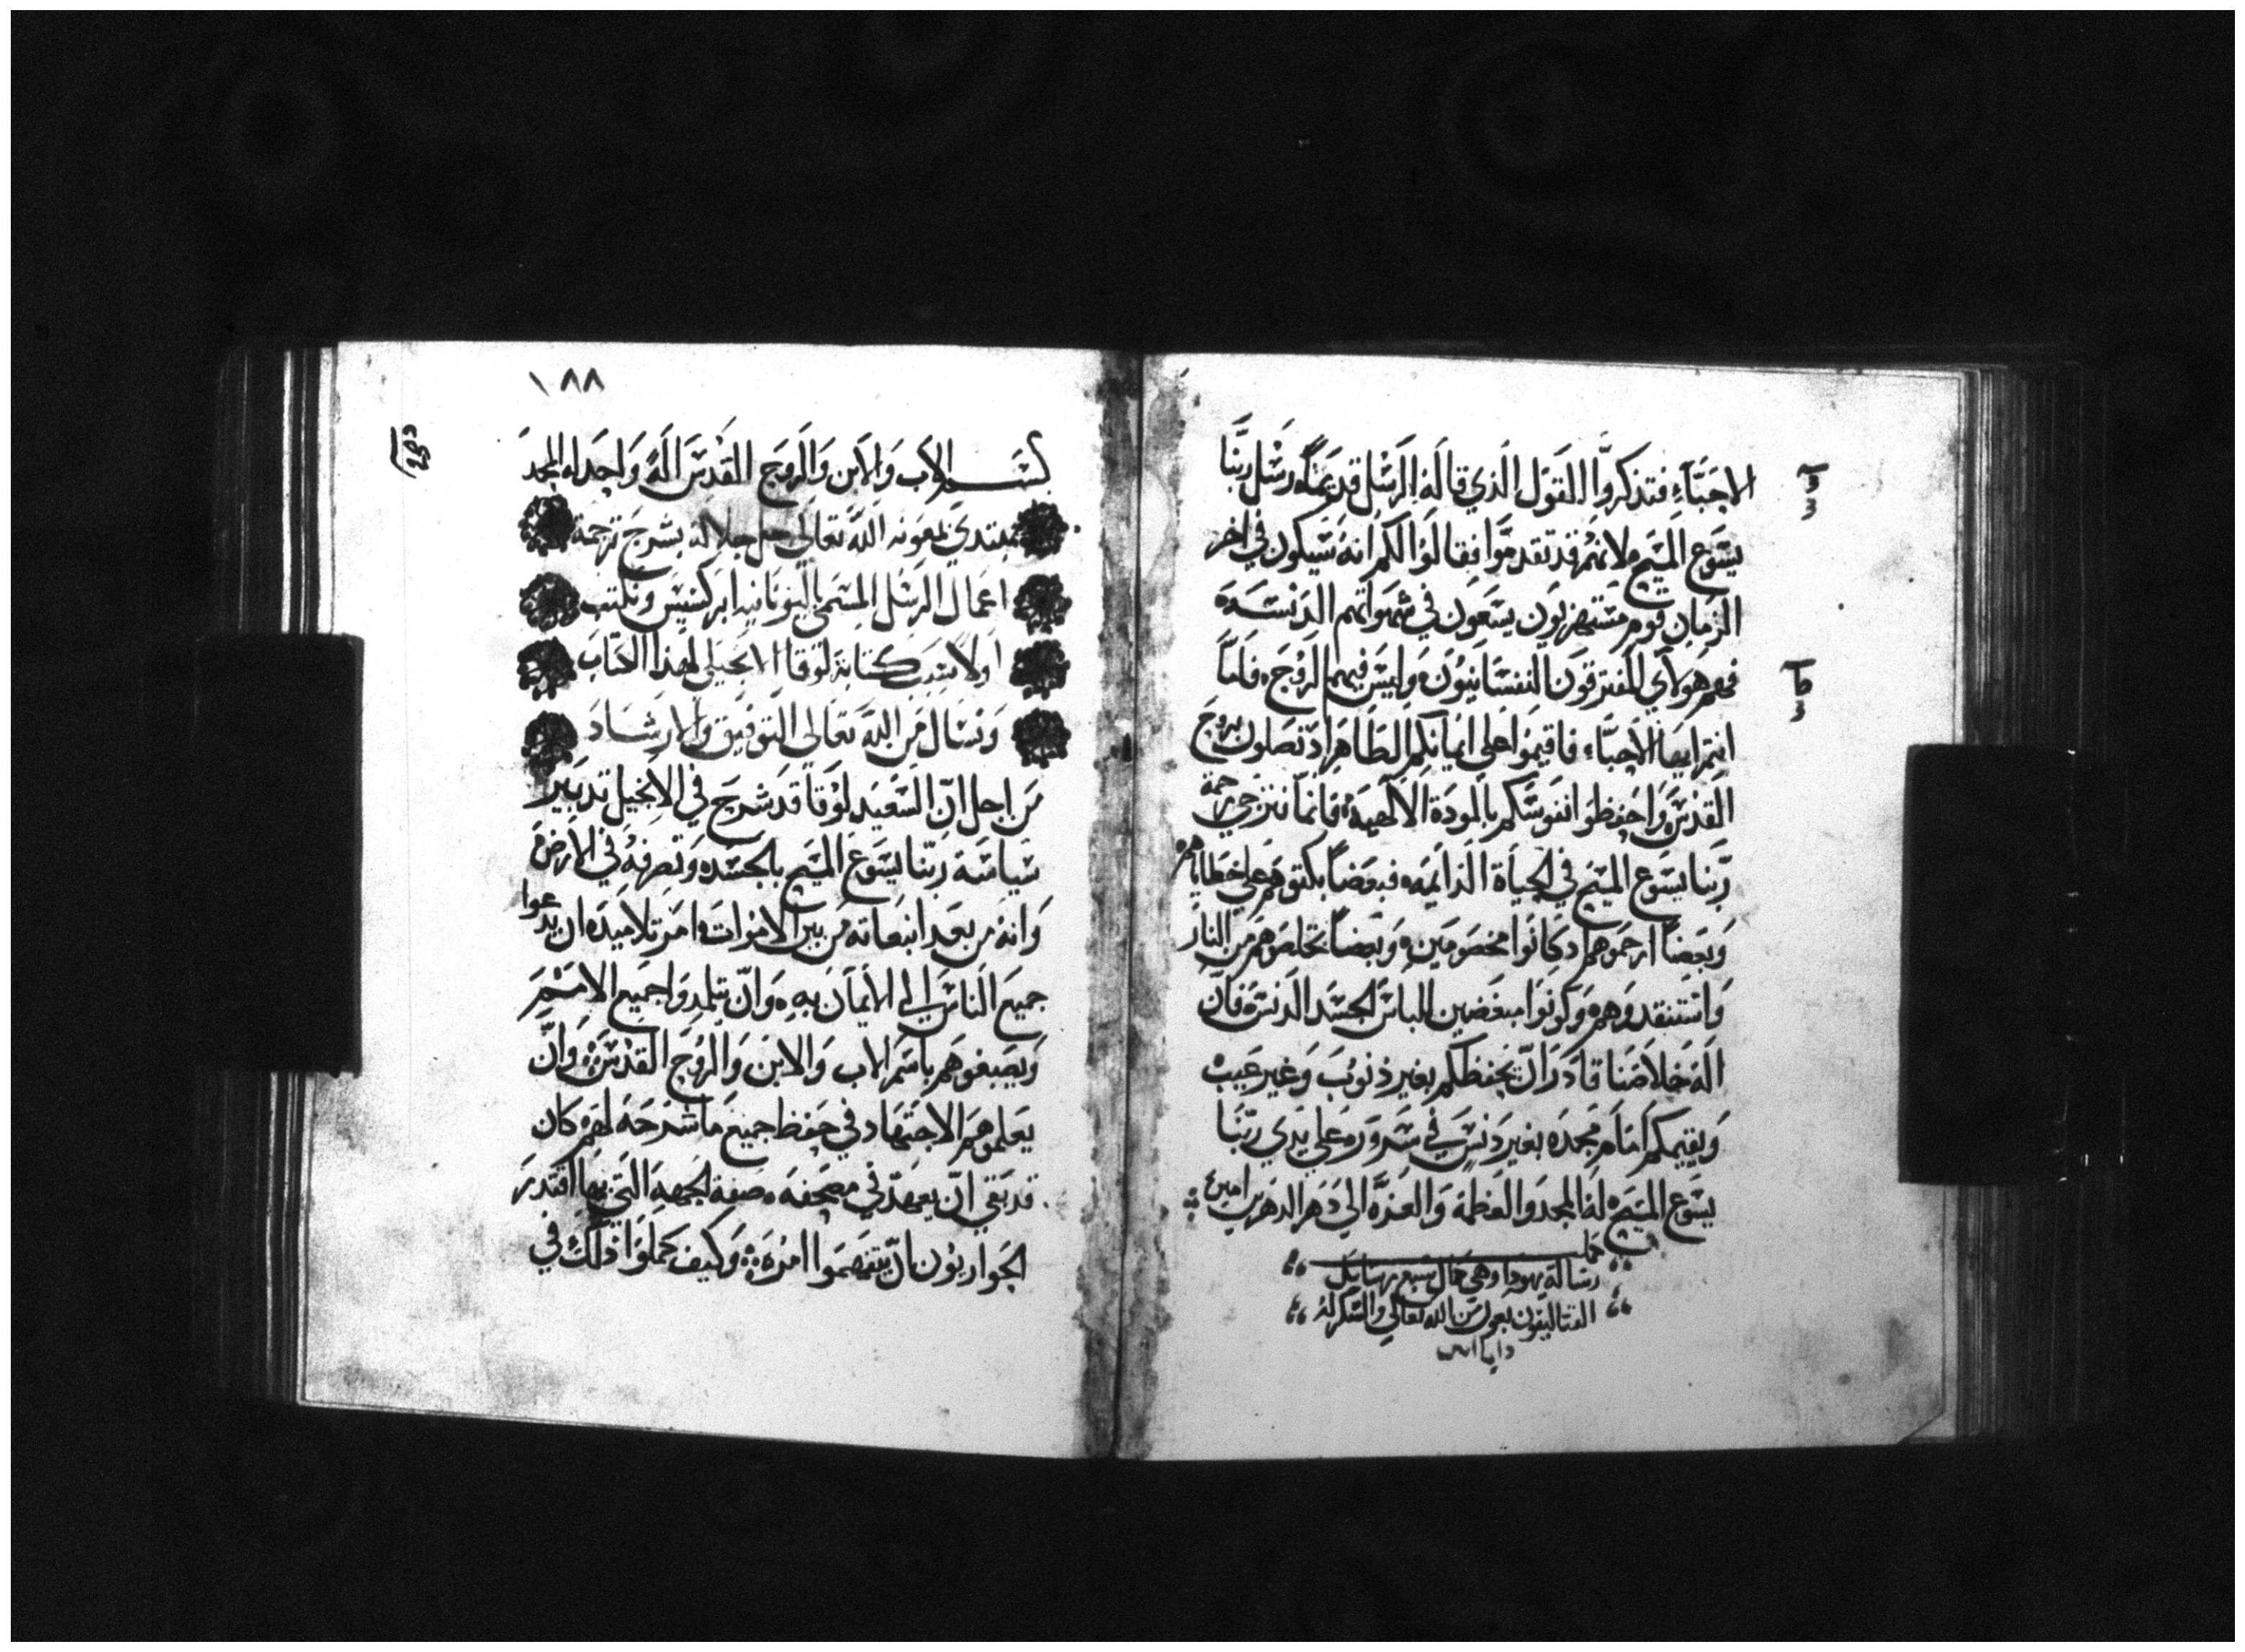 الاحبَّاءِ فتذكروُّا القول الذي قالهُ الرسل قديمًا رسل ربّنا
يسوع المسيح لانهُم قد تقدموُّا فقالوُا لكم انهُ سَيكون في اخر
الزمان قوم مستهزيون يسعون في شهواتهم الدنسه
فهم هولآي المفترقون النفسانيون وليس فيهم الروح فامّا
انتم ايها الاحبّاء فاقيموا على ايمانكم الطاهر اذ تصلون بروح
القدس واحفظوا انفوسكم بالمودة الالهيه فانما نترجي رحمة
ربّنا يسوع المسيح في الحياة الدايمه فبعضًا بكتوهم على خطاياهم
وبعضًا ارحموهم اذ كانوا مخصومين وبعضًا تخلصوهم من النار
واستنقدوهم وكونوا مبغضين للباس الجسد الدنس فان
اله خلاصنا قادر ان يحفظكم بغير ذنوب وغير عيب
ويقيمكم امام مجده بغير دنس في سرور على يدي ربّنا
يسوع المسيح له المجد والعظمة والعزّة الي دهر الدهرين امين
كملت
رسالة يهودا وهي كمال سبع رسايل
القتاليقون بعون من الله تعالي والشكر لهُ
دايما امين
١٨٨
بسم الاب والابن والروح القدس اله واحد له المجد
نبتدي بمعونه الله تعالي جل جلاله بشرح ترجمة
اعمال الرسل المسمي باليونانيه ابركسيس ونكتب
اولا سبب كتابة لوقا الانجيلي لهذا الكتاب
ونسال من الله تعالي التوفيق والارشاد
من اجل انّ السعيد لوقا قد شرح في الانجيل تدبير
سياسة ربّنا يسوع المسيح بالجسد وتصرفه في الارض
وانه من بعد انبعاثه من بين الاموات امر تلاميده ان يدعوا
جميع الناس الي الايمان به وانّ يتلمدوا جميع الامم
ويصبغوهم باسم الاب والابن والروح القدس وانّ
يعلموهم الاجتهاد في حفظ جميع ما شرحه لهم كان
قد بقي انّ يعهد في مصحفه صفة الجهه التي بها اقتدر
الحواريون ان يتفهموا امره وكيف كملوا ذلك في